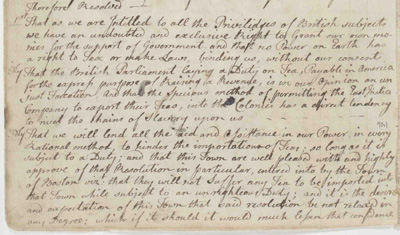 Therefore Resolved
1st That as we are Intitled to all the Priviledges of British Subjects
we have an undoubted and exclusive Right to Grant our own mo-
nies for the support of Government and that no Power on Earth has
a right to Tax or make Laws, binding us, without our consent.
2ly That the British Parliament laying a Duty on Tea, Payable in America
for the express purpose of Raising a Revenue, is in our Opinion an un-
Just Taxation and that the specious method of permitting the East India
Company to export their Teas, into the Colonies has a direct tendency
to rivet the chains of Slavery upon us
3ly That we will lend all the aid and assistance in our Power in every
Rational method, to hinder the importation of Tea; so long as it is
subject to a Duty; and that this Town are well pleased with and highly
approve of that Resolution in particular, entered into by the Town
of Boston viz. that they will not suffer any Tea to be imported into
that Town while subject to an unrighteous Duty; and it is the desire
and expectation of this Town that said resolution be not relaxed in
any Degree; which if it should it would much lessen that confidence